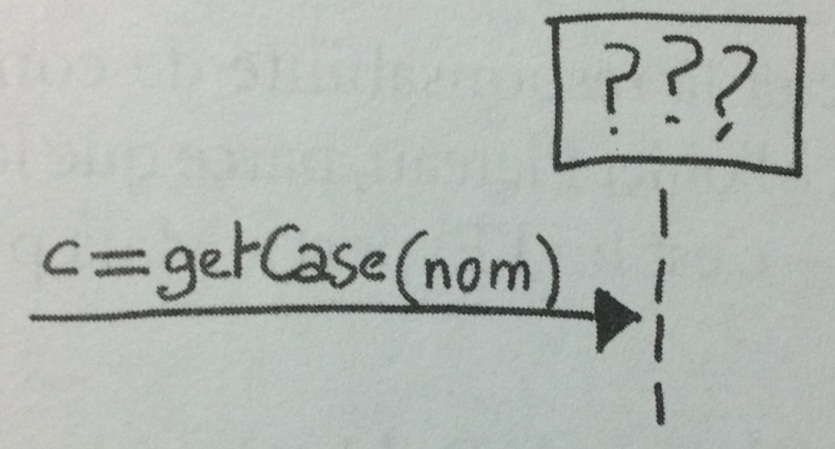 ???
c=getCase(nom)